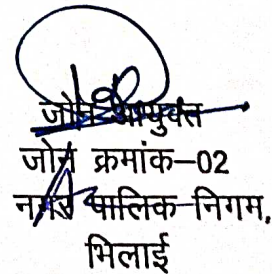 जोन आयुक्त
जोन क्रमांक–02
नगर पालिक निगम,
भिलाई